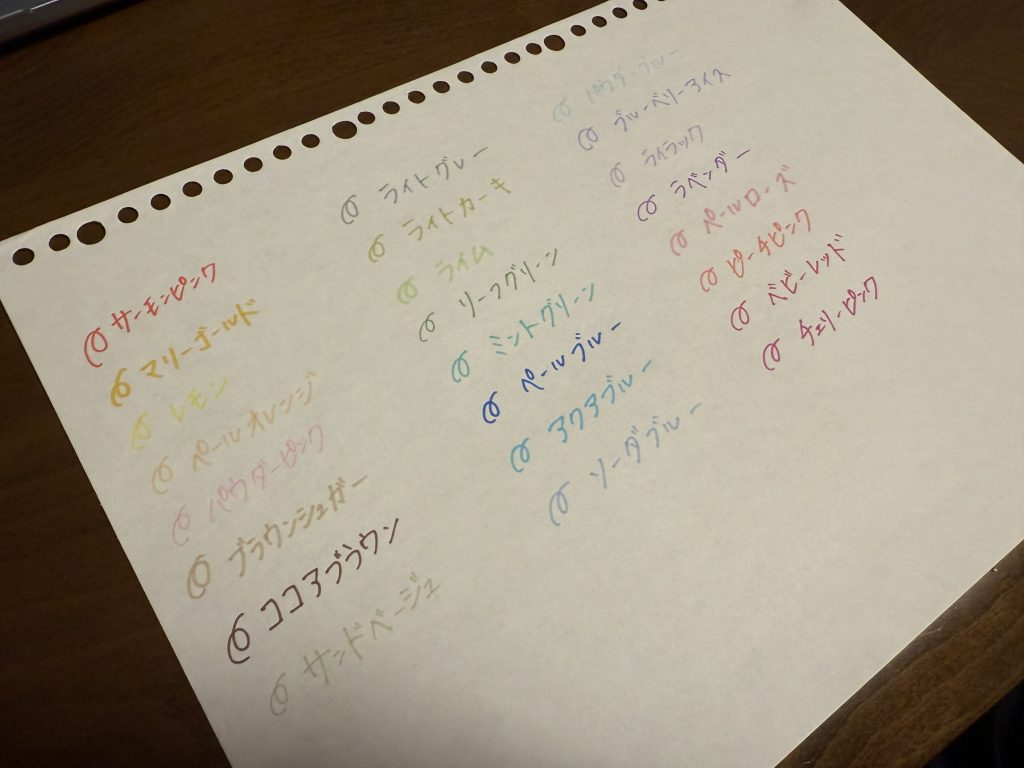 サーモンピンク
マリーゴールド
レモン
ペールオレンジ
パウダーピンク
ブラウンシュガー
ココアブラウン
サンドベージュ
ライトグレー
ライトカーキ
ライム
リーフグリーン
ミントグリーン
ペールブルー
アクアブルー
ソーダブルー
パウダーブルー
ブルーベリーアイス
ライラック
ラベンダー
ペールローズ
ピーチピンク
ベビーレッド
チェリーピンク